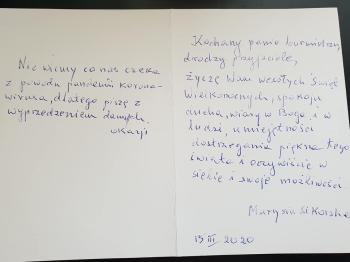 Nie wiemy co nas czeka
z powodu pandemii korona-
wirusa, dlatego piszę z
wyprzedzeniem
Kochany panie burmistrzu,
drodzy przyjaciele,
życzę Wam wesołych Świąt
Wielkanocnych, spokoju
ducha, wiary w Boga i w
ludzi, umiejętności
dostrzegania piękna tego
świata i oczywiście w
siebie i swoje możliwości.
Marysia Sikorska
13 III 2020